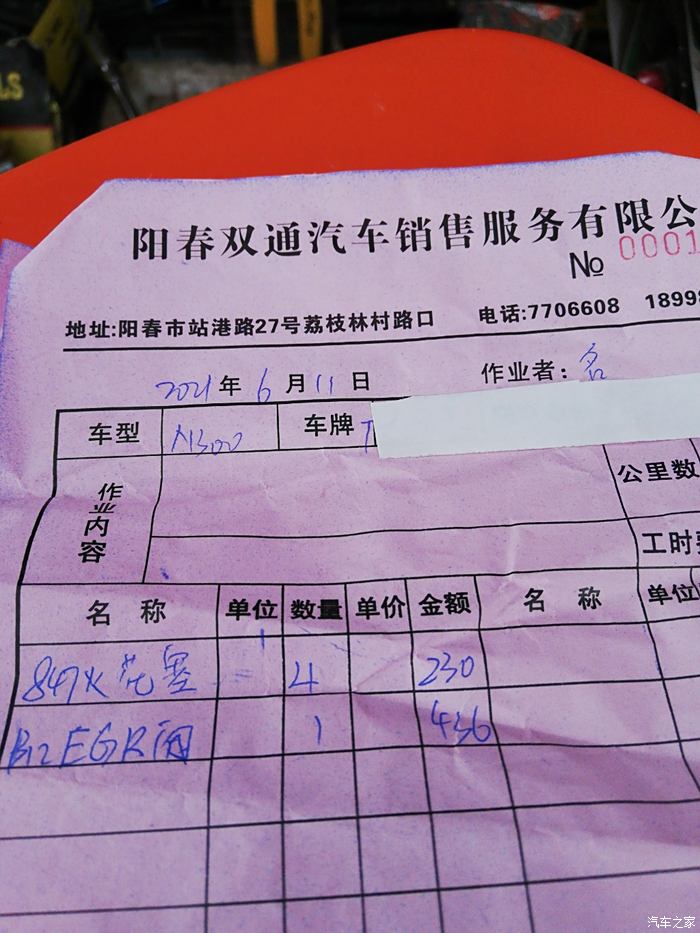 LS
阳春双通汽车销售服务有限公
№ 0001
地址:阳春市站港路27号荔枝林村路口 电话:7706608 1899
2021年6月11日 作业者:名
车型 N300 车牌
作业内容 公里数
工时
名称 单位 数量 单价 金额 名称 单位
847火花塞 4 230
B12EGR阀 1 436
汽车之家